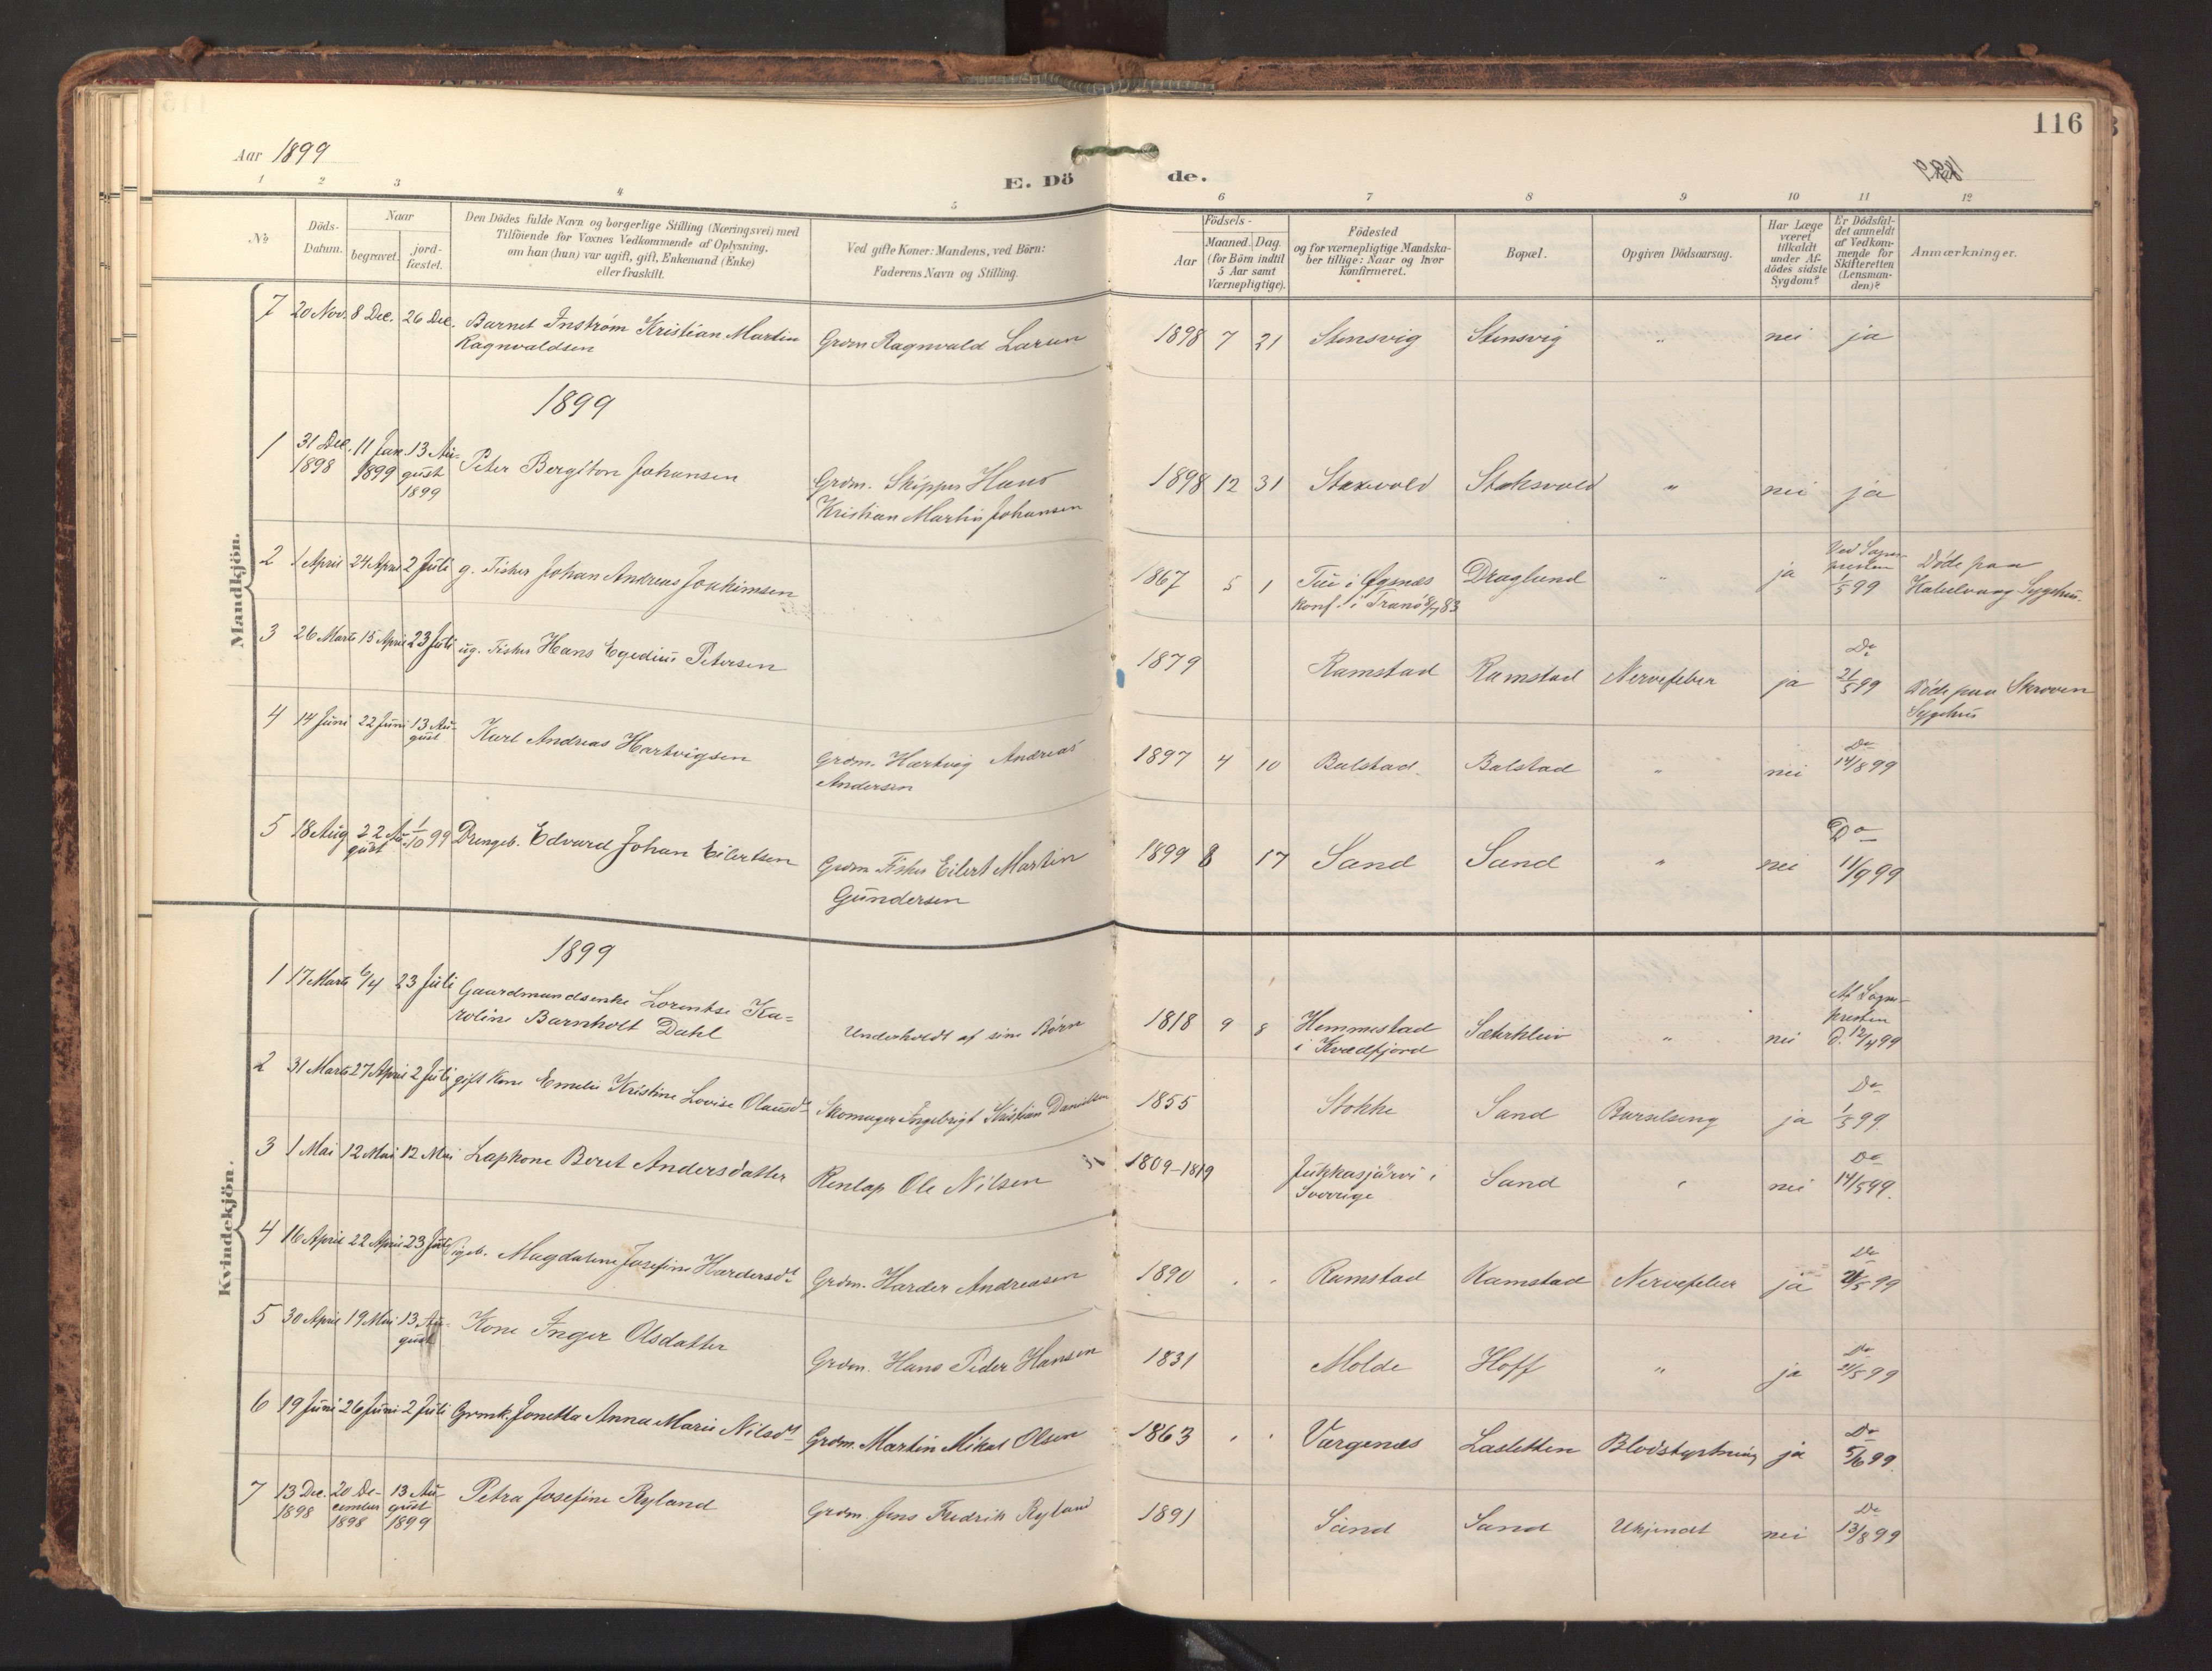 116
Aar 1899
E. Dö de.
1 2 3 4 5 6 7 8 9 10 11 12
№
Döds-Datum.
Naar
begravet.
jord-fæstet.
Den Dödes fulde Navn og borgerlige Stilling (Næringsvei) med
Tilföiende for Voxnes Vedkommende af Oplysning,
om han (hun) var ugift, gift, Enkemand (Enke)
eller fraskilt.
Ved gifte Koner: Mandens, ved Börn:
Faderens Navn og Stilling.
Födsels-
Aar
Maaned. Dag.
(for Börn indtil
5 Aar samt
Værnepligtige).
Födested
og for værnepligtige Mandska-
ber tillige: Naar og hvor
Konfirmeret.
Bopæl.
Opgiven Dödsaarsag.
Har Læge
været
tilkaldt
under Af-
dödes sidste
Sygdom?
Er Dödsfal-
det anmeldt
af Vedkom-
mende for
Skifteretten
(Lensman-
den)?
Anmærkninger.
Mandkjön.
7 20 Nov. 8 Dec. 26 Dec. Barnet Instrøm Kristian Martin
Ragnvaldsen
Grdm Ragnvald Larsen 1898 7 21 Stensvig Stensvig " nei ja
1899
1 31 Dec. 1898 11 Jan. 1899 13 August 1899 Peter Bergiton Johansen
Grdm. Skipper Hans
Kristian Martin Johansen 1898 12 31 Staxvold Staksvold " nei ja
2 1 April 24 April 2 Juli g. Fisker Johan Andreas Joakimsen 1867 5 1 Tui i Øgsnæs
Konf. i Tranö 8/7 83 Draglund " ja Ved Sogne-
presten
1/5 99 Döde paa
Kabelvaag Sygehus.
3 26 Marts 15 April 23 Juli ug. Fisker Hans Egedius Petersen 1879 Ramstad Ramstad Nervefeber ja Do
21/5 99 Döde paa Skroven
Sygehus
4 14 Juni 22 Juni 13 August Karl Andreas Hartvigsen
Grdm. Hartvig Andreas
Andersen 1897 4 10 Balstad. Balstad " nei Do
14/8 99
5 18 Aug 22 August 1/10 99 Drengeb. Edvard Johan Eilertsen
Grdm Fisker Eilert Martin
Gundersen 1899 8 17 Sand Sand " nei Do
11/9 99
Kvindekjön.
1899
1 17 Marts 6/4 23 Juli Gaardmandsenke Lorentse Ka=
roline Barnholt Dahl
Underholdt af sine Børn 1818 9 8 Hemmestad
i Kvædfjord Sæterkleiv " nei Af Sogne-
presten
d. 12/4 99
2 31 Marts 27 April 2 Juli gift Kone Emelie Kristine Lovise Olausd. Skomager Ingebrigt Kristian Danielsen 1855 Stokke Sand Barselseng ja Do
1/5 99.
3 1 Mai 12 Mai 12 Mai Lapkone Beret Andersdatter Renlap Ole Nilsen 1809-1819 Jukkasjärvi i
Sverrige Sand " nei Do
14/5 99.
4 16 April 22 April 23 Juli Pigeb. Magdalene Josefine Hardersdt. Grdm. Harder Andreasen 1890 Ramstad Ramstad Nervefeber ja Do
21/5 99
5 30 April 19 Mai 13 August Kone Inger Olsdatter Grdm. Hans Peder Hansen 1831 Molde Hoff " ja Do
21/5 99
6 19 Juni 26 Juni 2 Juli Grmk. Jonetta Anna Marie Nilsdt. Grdm. Martin Mikal Olsen 1863 Vargenæs Lasletten Blodstyrtning ja Do
5/6 99
7 13 Dec. 1898 20 December 1898 13 August 1899 Petra Josefine Ryland Grdm. Jens Fredrik Ryland 1891 Sand Sand Ukjendt nei Do
13/8 99